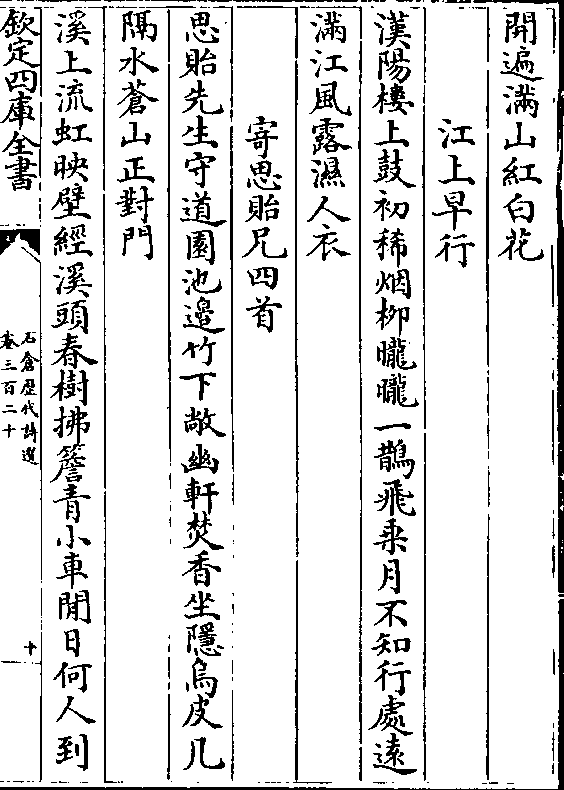 開遍滿山紅白花
江上早行
漢陽樓上鼓初稀烟柳曨曨一鵲飛乘月不知行處遠
滿江風露濕人衣
寄思貽兄四首
思貽先生守道園池邉竹下敞幽軒焚香坐隱烏皮几
隔水蒼山正對門
溪上流虹映壁經溪頭春樹拂簷青小車閒日何人到
欽定四庫全書
石倉歷代詩選
卷三百二十
十